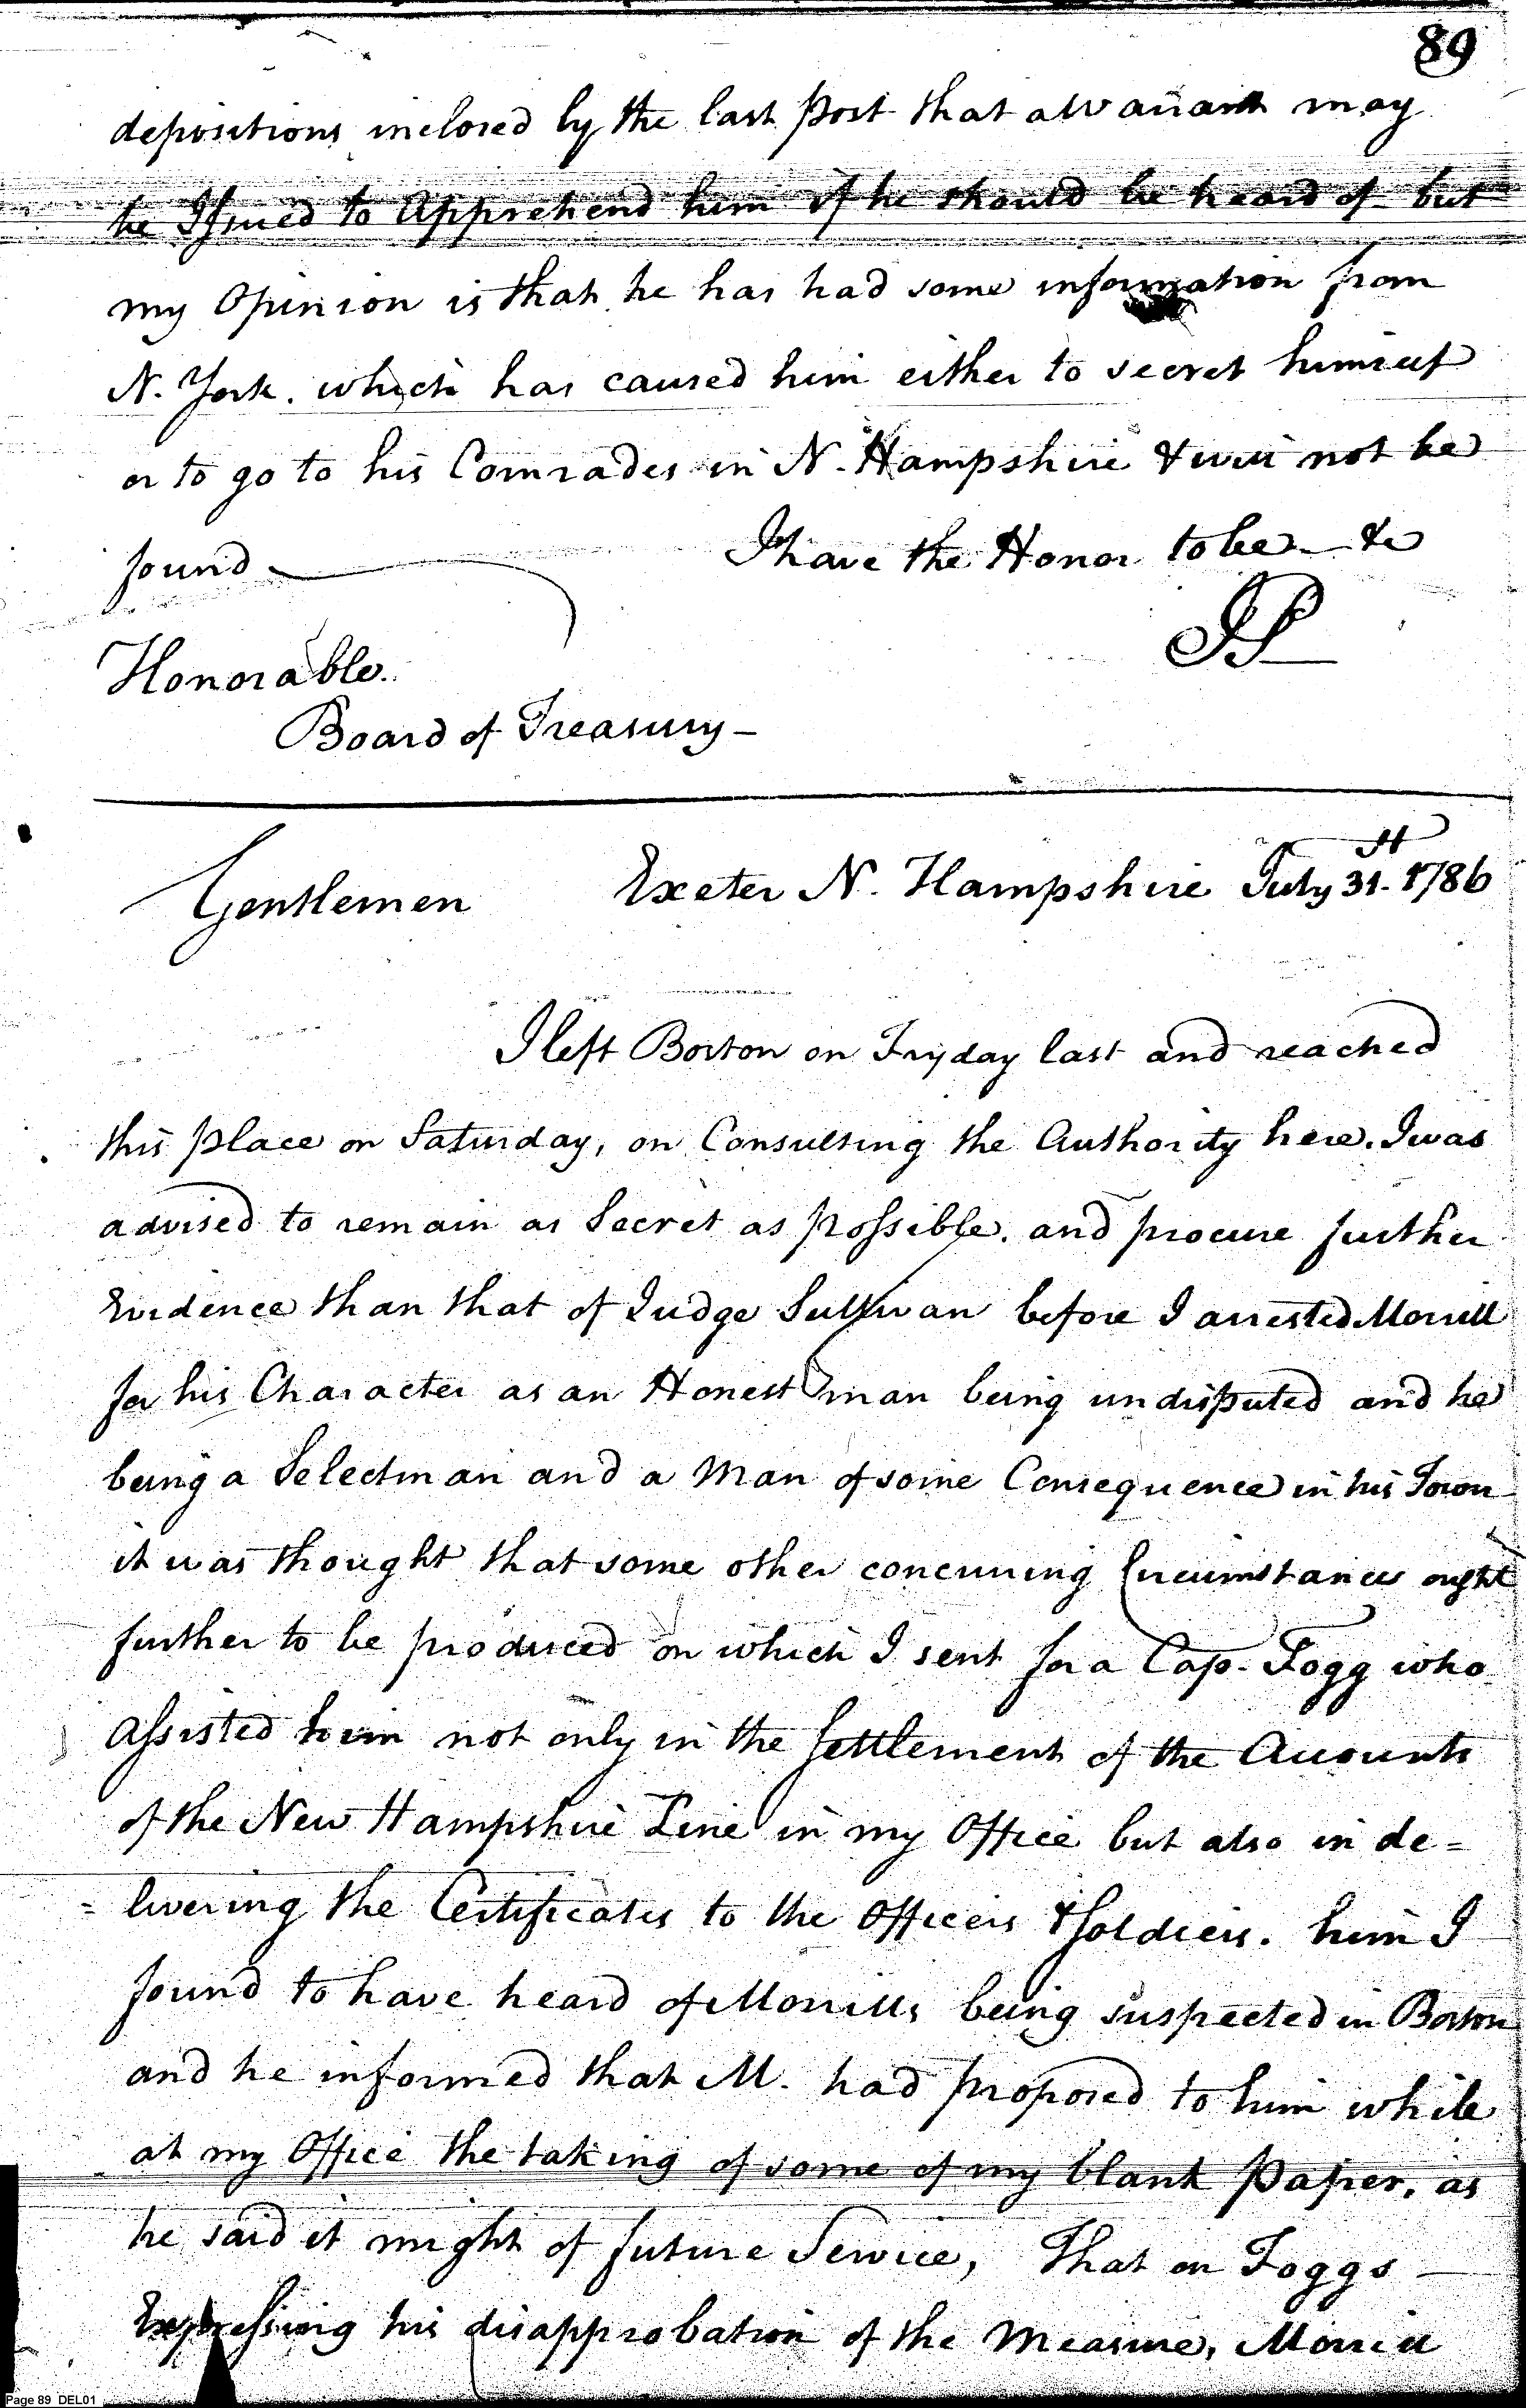 89
depositions inclosed by the last post that a Warrant may
be Issued to Apprehend him if he should be heard of but
my Opinion is that he has had some information from
N. York. which has caused him either to secret himself
or to go to his Comrades in N. Hampshire & will not be
found
I have the Honor to be — &c
JP
Honorable.
Board of Treasury —
Gentlemen Exeter N. Hampshire July 31st. 1786
I left Boston on Fryday last and reached
this place on Saturday, on Consulting the Authority here. I was
advised to remain as Secret as possible. and procure further
Evidence than that of Judge Sullivan before I arrested Morrill
for his Character as an Honest man being undisputed and he
being a Selectman and a Man of some Consequence in his Town
it was thought that some other concurring Circumstances ought
further to be produced on which I sent for a Cap. Fogg who
Assisted him not only in the Settlement of the Accounts
of the New Hampshire Line in my Office but also in de=
=livering the Certificates to the Officers & Soldiers. him I
found to have heard of Morrills being suspected in Boston
and he informed that M. had proposed to him while
at my Office the taking of some of my blank Paper, as
he said it might of future Service, That on Foggs
Expressing his disapprobation of the Measure, Morrill
Page 89 DEL01